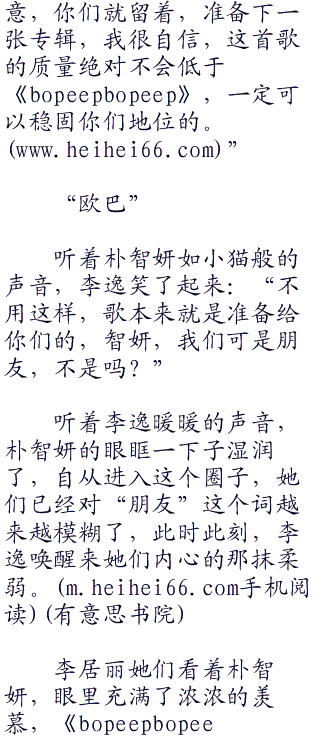 意，你们就留着，准备下一
张专辑，我很自信，这首歌
的质量绝对不会低于
《bopeepbopeep》，一定可
以稳固你们地位的。
(www.heihei66.com)”
“欧巴”
听着朴智妍如小猫般的
声音，李逸笑了起来：“不
用这样，歌本来就是准备给
你们的，智妍，我们可是朋
友，不是吗？”
听着李逸暖暖的声音，
朴智妍的眼眶一下子湿润
了，自从进入这个圈子，她
们已经对“朋友”这个词越
来越模糊了，此时此刻，李
逸唤醒来她们内心的那抹柔
弱。(m.heihei66.com手机阅
读)(有意思书院)
李居丽她们看着朴智
妍，眼里充满了浓浓的羡
慕，《bopeepbopee